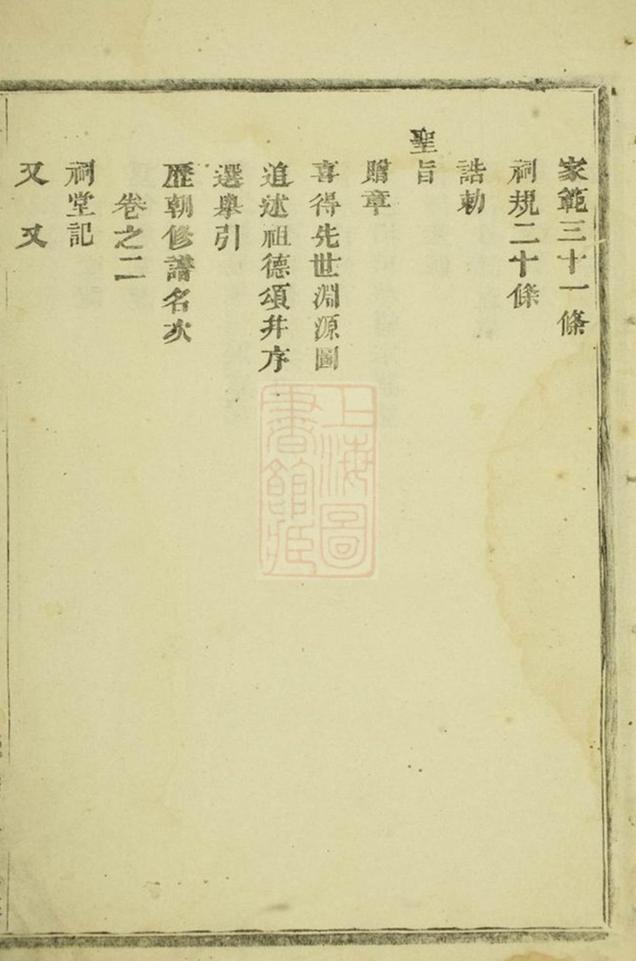 家範三十一條
祠規二十條
誥勅
聖旨
贈章
喜得先世淵源圖
追述祖德頌并序
選舉引
歷朝修譜名次
卷之二
祠堂記
又 又
上海圖書館藏